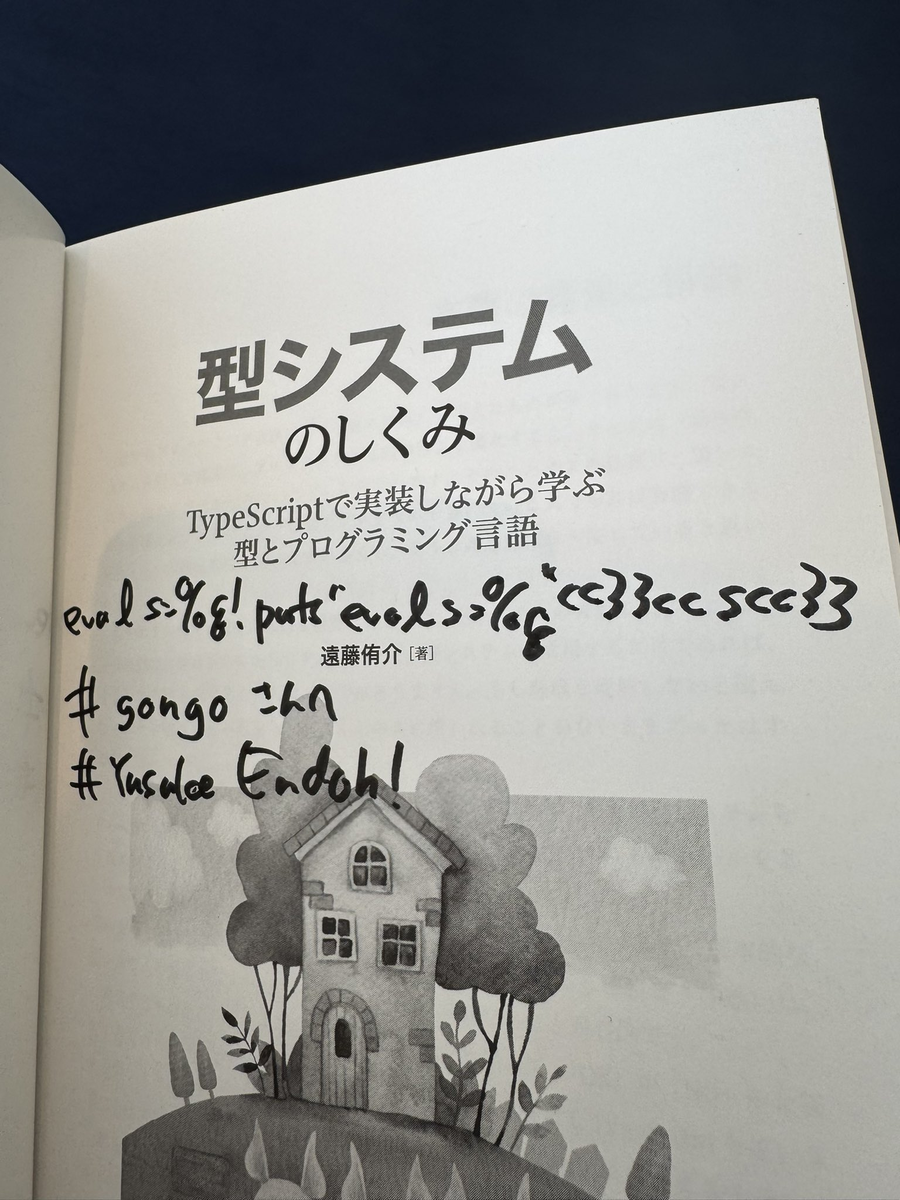 型システム
のしくみ
TypeScriptで実装しながら学ぶ
型とプログラミング言語
eval s=%q!puts"eval s=%q"<<33<<s<<33
遠藤侑介 [著]
# gongo さんへ
# Yusuke Endoh!